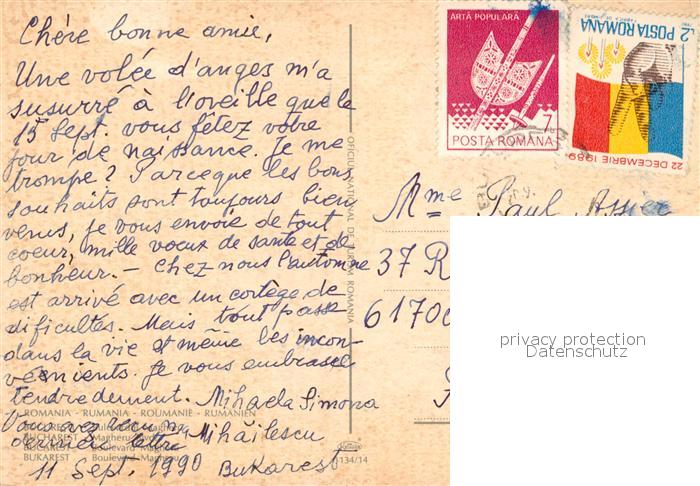 Chère bonne amie,
Une volée d'anges m'a
susurré à l'oreille que le
15 Sept. vous fêtez votre
jour de naissance. Je me
trompe? Parceque les bons
souhaits sont toujours bien
venus, je vous envoie de tout
coeur, mille voeux de santé et de
bonheur. — Chez nous l'automne
est arrivé avec un cortège de
difficultés. Mais tout passe
dans la vie et même les incon-
vénients. Je vous embrasse
tendredement. Mihaela Simona
Mihăilescu
Vous avez reçu ma
dernière lettre
11 Sept. 1990 Bukarest
ROMANIA - RUMANIA - ROUMANIE - RUMÄNIEN
BUCHAREST Magheru
BUKAREST Boulevard Magheru
134/14
OFICIUL NATIONAL DE TURISM ROMANIA
ARTĂ POPULARĂ
7
POSTA ROMANA
L2 POSTA ROMANA
22 DECEMBRIE 1989
Mme Paul Assier
37 R
61700
privacy protection
Datenschutz